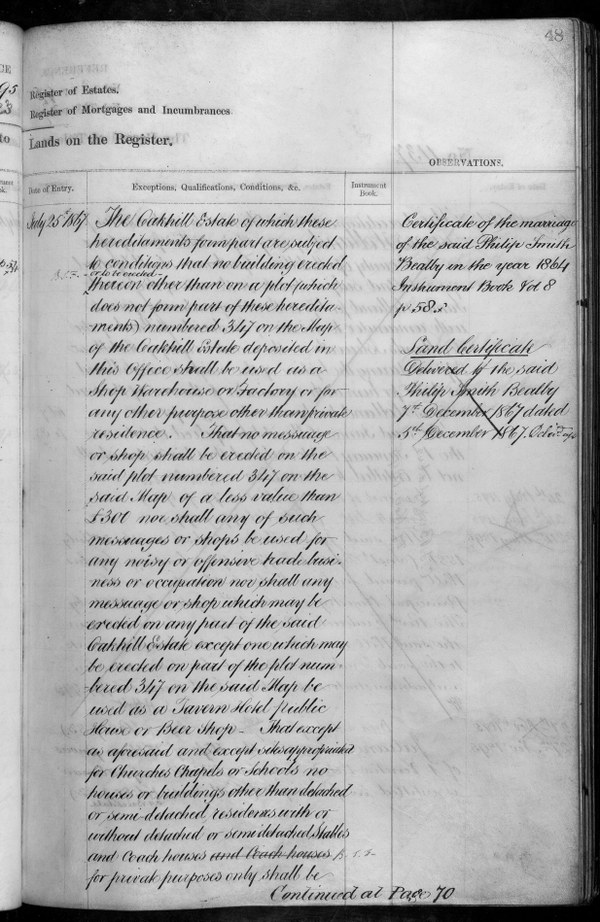 48
Register of Estates.
Register of Mortgages and Incumbrances
Lands on the Register.
OBSERVATIONS.
Date of Entry.
Exceptions, Qualifications, Conditions, &c.
Instrument Book.
July 25th 1867
The Oakhill Estate of which these
hereditaments form part are subject
to conditions that no building erected
or to be erected
thereon other than on a plot (which
does not form part of these heredita-
ments) numbered 347 on the Map
of the Oakhill Estate deposited in
this Office shall be used as a
Shop Warehouse or Factory or for
any other purpose other than private
residence. That no messuage
or shop shall be erected on the
said plot numbered 347 on the
said Map of a less value than
£300 nor shall any of such
messuages or shops be used for
any noisy or offensive trade busi-
ness or occupation nor shall any
messuage or shop which may be
erected on any part of the said
Oakhill Estate except one which may
be erected on part of the plot num-
bered 347 on the said Map be
used as a Tavern Hotel public
House or Beer Shop - That except
as aforesaid and except sites appropriated
for Churches Chapels or Schools no
houses or buildings other than detached
or semi-detached residents with or
without detached or semi detached Stables
and Coach houses and Coach houses
for private purposes only shall be
Continued at Page 70
Certificate of the marriage
of the said Philip Smith
Bealby in the year 1864
Instrument Book Vol 8
p 58
Land Certificate
Delivered to the said
Philip Smith Bealby
7th December 1867 dated
5th December 1867.